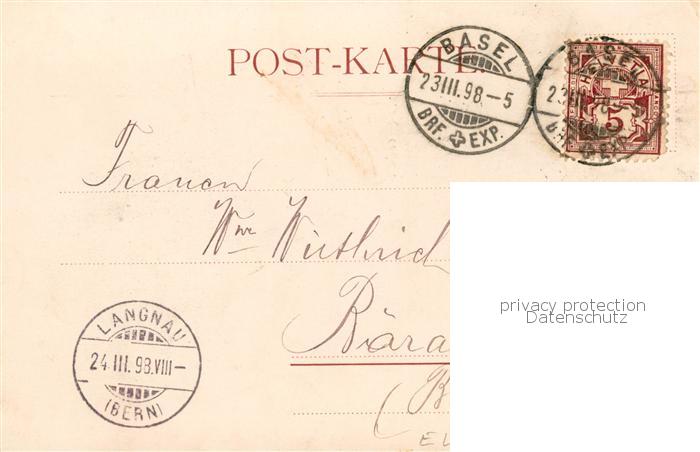 POST-KARTE.
BASEL
23 III. 98.–5
BRF. EXP.
BASEL
HELVETIA
5
Frauen
Wwe Wüthrich
Bära
(B
LANGNAU
24. III. 98. VIII–
(BERN)
privacy protection
Datenschutz